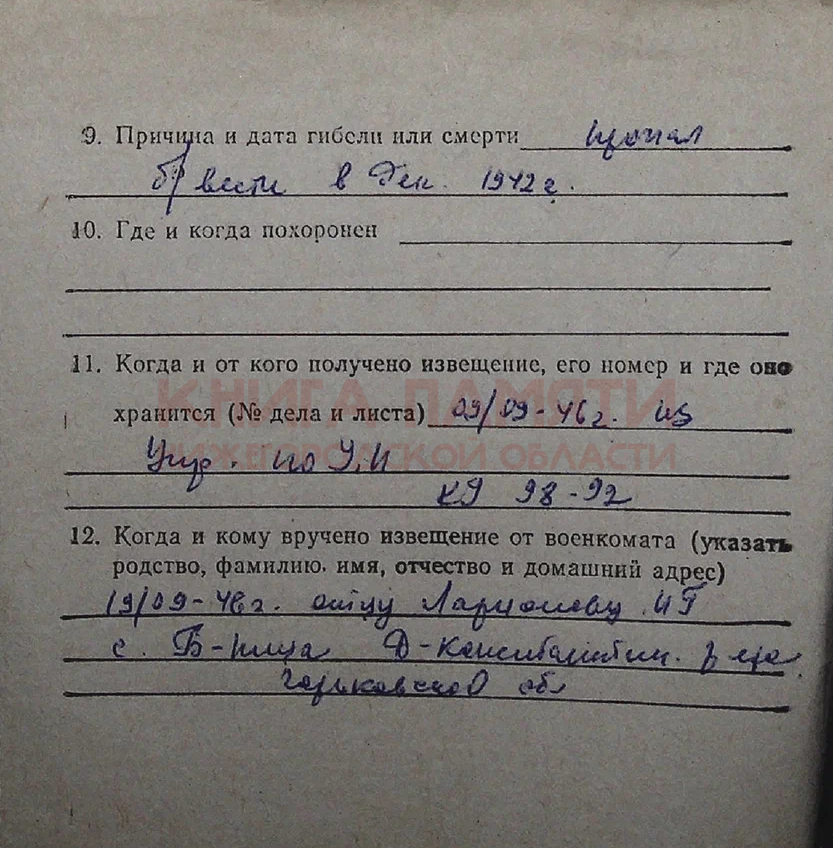 9. Причина и дата гибели или смерти пропал
б/ вести в Дек. 1942 г.
10. Где и когда похоронен
11. Когда и от кого получено извещение, его номер и где оно
КНИГА ПАМЯТИ
хранится (№ дела и листа) 09/09-46 г. из
НИЖЕГОРОДСКОЙ ОБЛАСТИ
Упр. по У.И
98-92
12. Когда и кому вручено извещение от военкомата (указать
родство, фамилию. имя, отчество и домашний адрес)
19/09-46 г. отцу Ларионову И Г
с. Д-Константин. р-на
Горьковской об